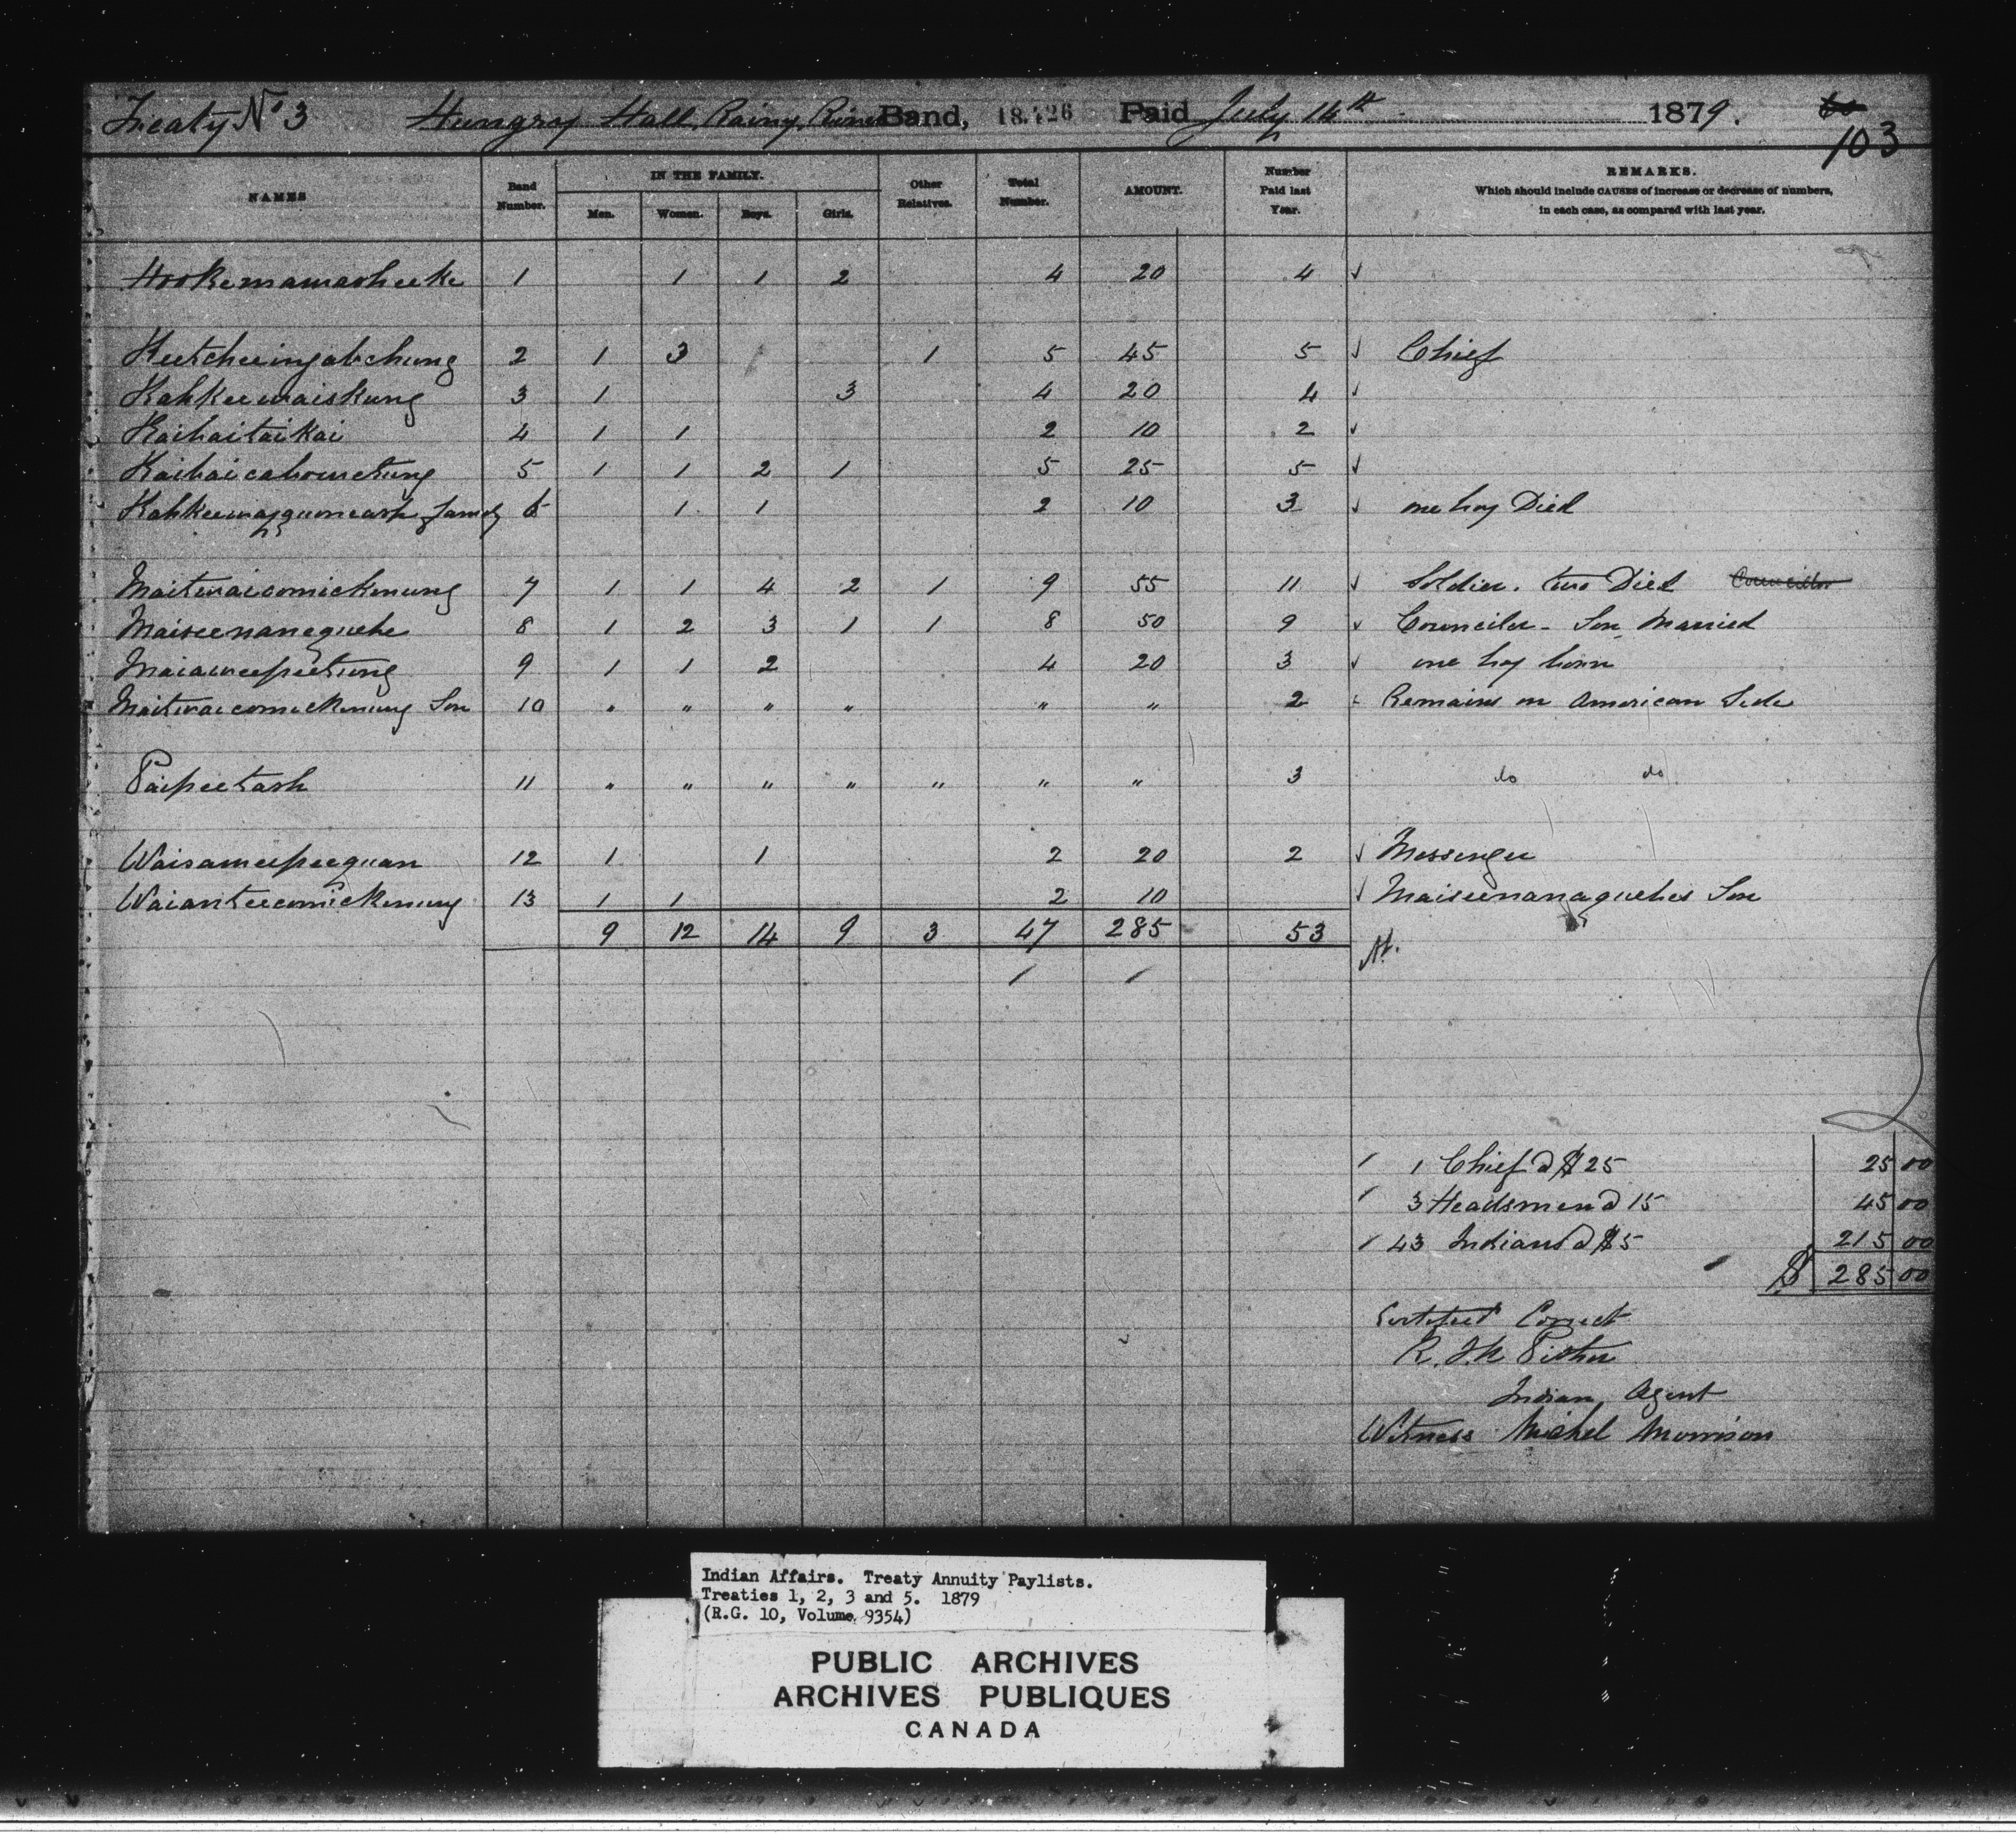 Treaty No 3 Hungry Hall, Rainy River Band, 18.426 Paid July 14th 1879. 60
103
NAMES Band Number. IN THE FAMILY. Men. Women. Boys. Girls. Other Relatives. Total Number. AMOUNT. Number Paid last Year. REMARKS.
Which should include CAUSES of increase or decrease of numbers,
in each case, as compared with last year.
Hookemawasheeke 1 1 1 2 4 20 4 ✓
Keetcheeingabchung 2 1 3 1 5 45 5 ✓ Chief
Kahkeewaiskung 3 1 3 4 20 4 ✓
Kaibaitaikai 4 1 1 2 10 2 ✓
Kaibaicabowetung 5 1 1 2 1 5 25 5 ✓
Kahkeewayquoneash family 6 1 1 2 10 3 ✓ one boy Died
Maitwaicomickmung 7 1 1 4 2 1 9 55 11 ✓ Soldier. two Died Councillor
Maiseenanaquebe 8 1 2 3 1 1 8 50 9 ✓ Counciler - Son Married
Maiaweepeetung 9 1 1 2 4 20 3 ✓ one boy born
Maitwaicomickmung Son 10 " " " " " " 2 Remains on American Side
Paipeetash 11 " " " " " " " 3 do do
Waisameepeequan 12 1 1 2 20 2 ✓ Messenger
Waianteecomickmung 13 1 1 2 10 ✓ Maiseenanaquebes Son
9 12 14 9 3 47 285 53
1 Chief @ $25 25 00
3 Headsmen @ 15 45 00
43 Indians @ $5 215 00
$ 285 00
Certified Correct
R. J. N. Pither
Indian Agent
Witness Michel Morrison
Indian Affairs. Treaty Annuity Paylists.
Treaties 1, 2, 3 and 5. 1879
(R.G. 10, Volume 9354)
PUBLIC ARCHIVES
ARCHIVES PUBLIQUES
CANADA